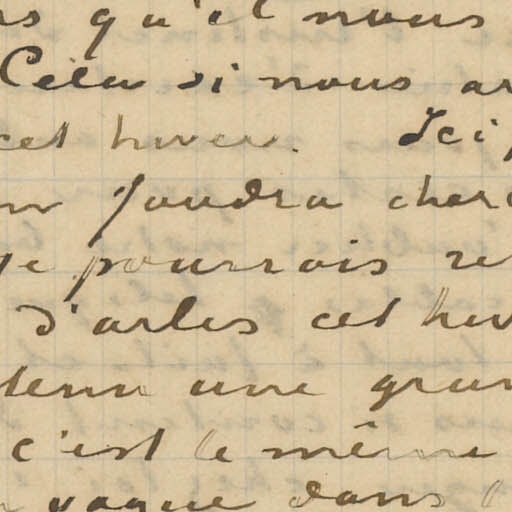 qu'il nous
Cela si nous
cet hiver. Ici
faudra
je pourrais
d'arles cet
une
c'est le même
vague dans